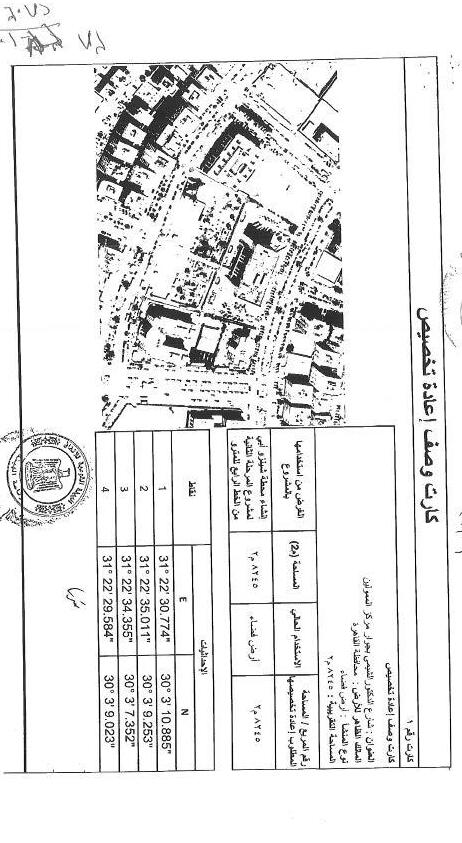 كارت وصف إعادة تخصيص
كارت رقم ١
كارت وصف إعادة تخصيص
العنوان : شارع الدكتور التنيحي بجوار مركز المسولين
المالك الظاهر للأرض : محافظة القاهرة
نوع المنشأ : أرض فضاء
المساحة التقريبية : ٨٢٤٥ م٢
الغرض من إستخدامها بالمشروع
المساحة (م2)
الاستخدام الحالي
رقم المربع / المساحة المطلوب إعادة تخصيصها
إنشاء محطة هشام بركات
لمشروع المرحلة الثانية
من الخط الرابع للمترو
٨٢٤٥ م٢
أرض فضاء
٨٢٤٥ م٢
نقاط
الإحداثيات
E
N
1 31° 22' 30.774" 30° 3' 10.885"
2 31° 22' 35.011" 30° 3' 9.253"
3 31° 22' 34.355" 30° 3' 7.352"
4 31° 22' 29.584" 30° 3' 9.023"